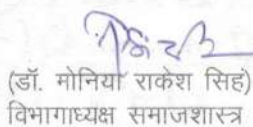 (डॉ. मोनिया राकेश सिह)
विभागाध्यक्ष समाजशास्त्र